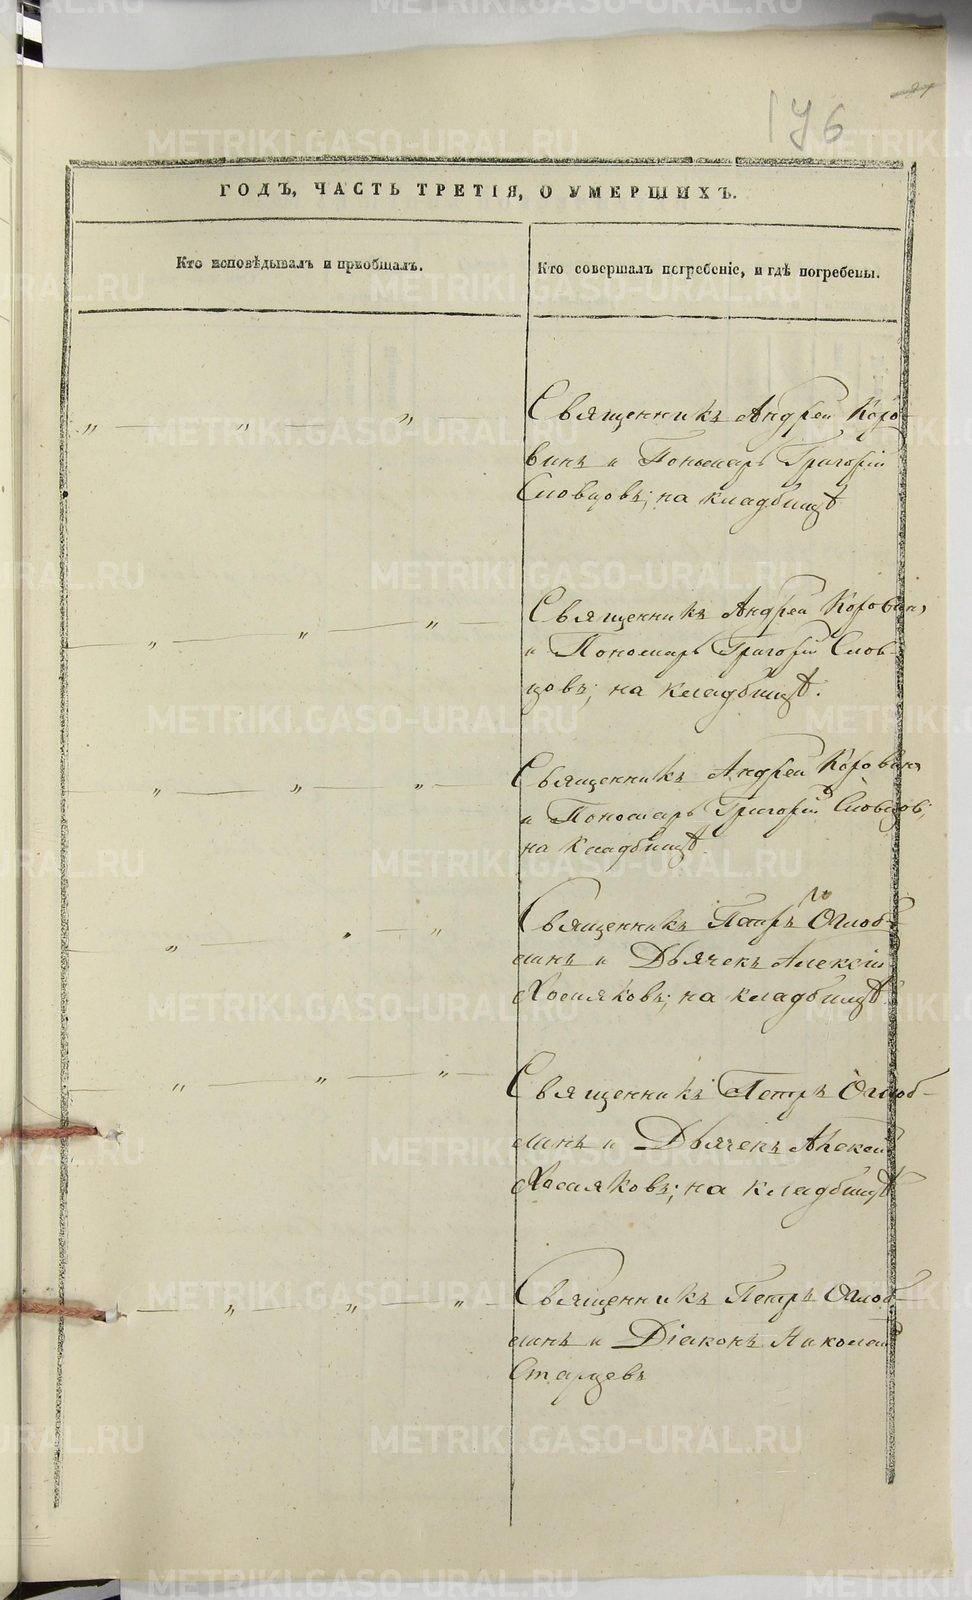 176
ГОДЪ, ЧАСТЬ ТРЕТІЯ, О УМЕРШИХЪ.
Кто исповѣдывалъ и пріобщалъ.
Кто совершалъ погребеніе, и гдѣ погребены.
„ „ „ Священникъ Андрей Коро-
винъ и Пономарь Григорій
Словцовъ; на кладбищѣ
„ „ „ Священникъ Андрей Коровинъ
и Пономарь Григорій Слов-
цовъ; на кладбищѣ.
„ „ „ Священникъ Андрей Коровинъ
и Пономарь Григорій Словцовъ;
на кладбищѣ.
„ „ „ Священникъ Петръ Оглоб-
линъ и Дьячекъ Алексій
Хомяковъ; на кладбищѣ.
„ „ „ Священникъ Петръ Оглоб-
линъ и Дьячекъ Алексій
Хомяковъ; на кладбищѣ
„ „ „ Священникъ Петръ Оглоб-
линъ и Діаконъ Николай
Старцевъ
METRIKI.GASO-URAL.RU